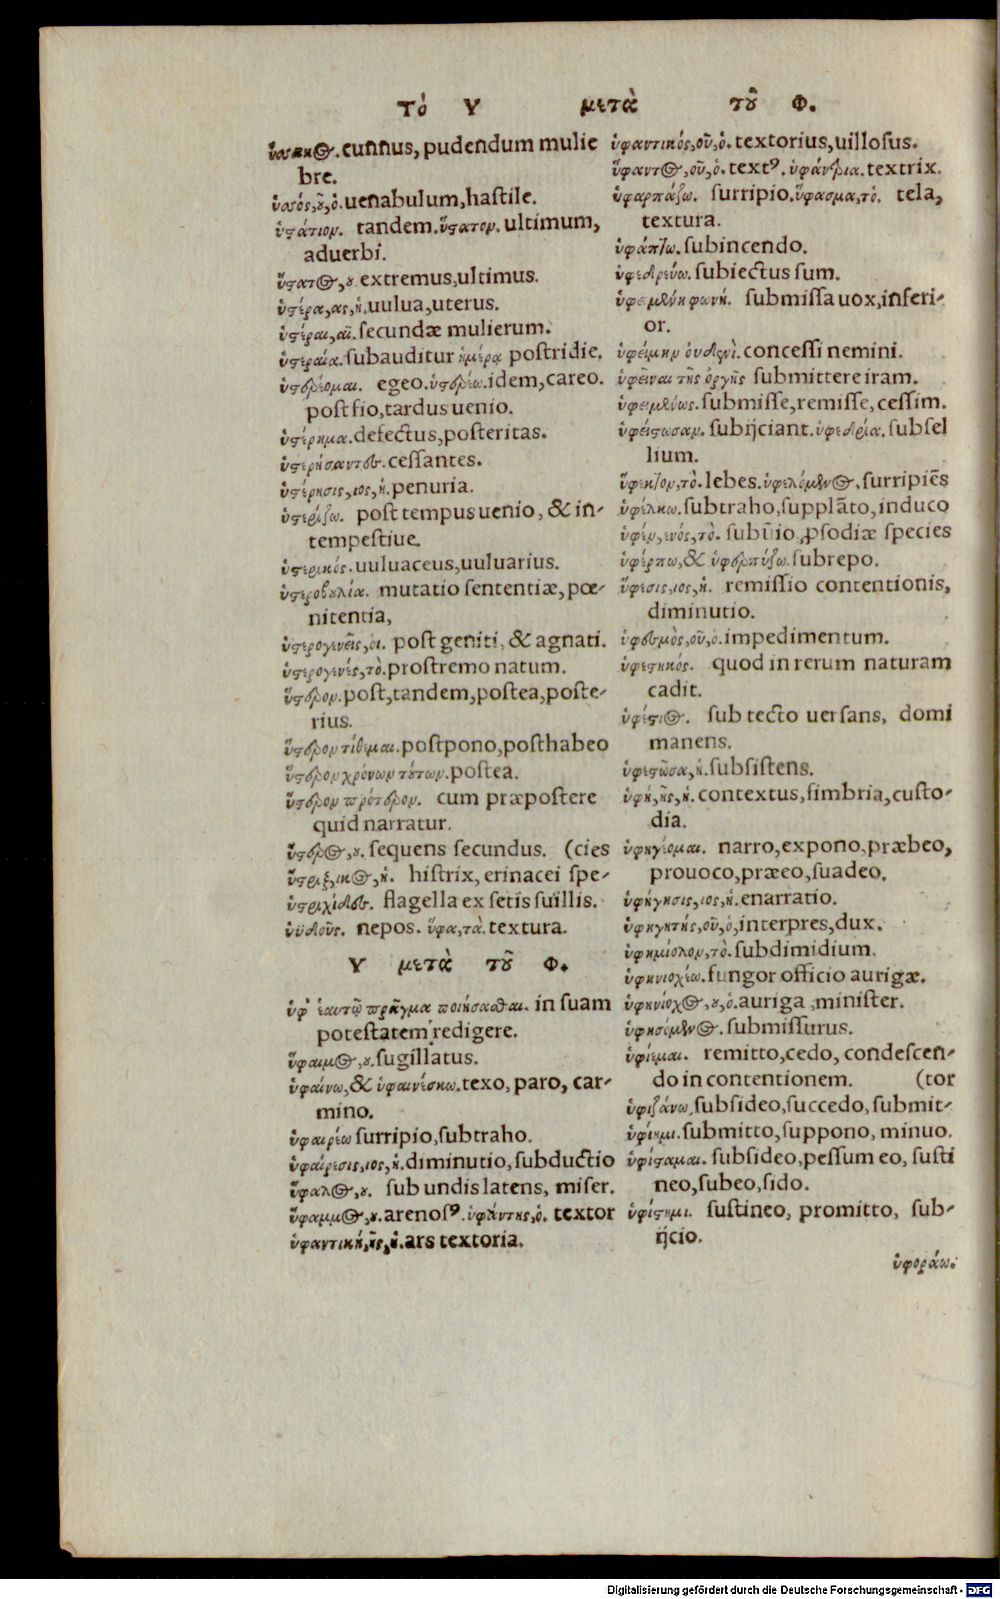 Τὸ Υ μετὰ τοῦ Φ.
ὕσσακος. cunnus, pudendum mulie
bre.
ὑσσός, οῦ, ὁ. uenabulum, hastile.
ὑστάτιον. tandem. ὕστατον. ultimum,
aduerbi.
ὕστατος, ου. extremus, ultimus.
ὑστέρα, ας, ἡ. uulua, uterus.
ὑστέραι, αἱ. secundæ mulierum.
ὑστεραία. subauditur ἡμέρα postridie.
ὑστερέομαι. egeo. ὑστερέω. idem, careo.
post fio, tardus uenio.
ὑστέρημα. defectus, posteritas.
ὑστερήσαντες. cessantes.
ὑστέρησις, ιος, ἡ. penuria.
ὑστερίζω. post tempus uenio, & in-
tempestiue.
ὑστερικός. uuluaceus, uuluarius.
ὑστεροβουλία. mutatio sententiæ, pœ-
nitentia,
ὑστερογενεῖς, οι. post geniti, & agnati.
ὑστερογενές, τὸ. prostremo natum.
ὕστερον. post, tandem, postea, poste-
rius.
ὕστερον τίθεμαι. postpono, posthabeo
ὕστερον χρόνων τούτων. postea.
ὕστερον πρότερον. cum præpostere
quid narratur.
ὕστερος, ου. sequens secundus. (cies
ὕστριξ, ικος, ἡ. histrix, erinacei spe-
ὑστριχίδες. flagella ex setis suillis.
ὑϊδοῦς. nepos. ὕφα, τὰ. textura.
Υ μετὰ τοῦ Φ.
ὑφ' ἑαυτῷ πρᾶγμα ποιήσασθαι. in suam
potestatem redigere.
ὕφαιμος, ου. sugillatus.
ὑφαίνω, & ὑφαινέσκω. texo, paro, car-
mino.
ὑφαιρέω surripio, subtraho.
ὑφαίρεσις, ιος, ἡ. diminutio, subductio
ὕφαλος, ου. sub undis latens, miser.
ὕφαμμος, ου. arenosꝰ. ὑφάντης, ὁ. textor
ὑφαντική, ῆς, ἡ. ars textoria.
ὑφαντικός, οῦ, ὁ. textorius, uillosus.
ὕφαντος, οῦ, ὁ. textꝰ. ὑφάντρια. textrix.
ὑφαρπάζω. surripio. ὕφασμα, τὸ. tela,
textura.
ὑφάπτω. subincendo.
ὑφεδρεύω. subiectus sum.
ὑφειμένη φωνή. submissa uox, inferi-
or.
ὑφείμην οὐδενὶ. concessi nemini.
ὑφεῖναι τῆς ὀργῆς submittere iram.
ὑφειμένως. submisse, remisse, cessim.
ὑφείσωσαν. subijciant. ὑφεδρία. subsel
lium.
ὕφεκτον, τὸ. lebes. ὑφελόμενος, surripiēs
ὑφέλκω. subtraho, supplāto, induco
ὑφέν, ενός, τὸ. subūio, ꝓsodiæ species
ὑφέρπω, & ὑφερπύζω. subrepo.
ὕφεσις, ιος, ἡ. remissio contentionis,
diminutio.
ὑφεσμὸς, οῦ, ὁ. impedimentum.
ὑφεστηκός. quod in rerum naturam
cadit.
ὑφέστιος. sub tecto uersans, domi
manens.
ὑφεστῶσα, ἡ. subsistens.
ὑφή, ῆς, ἡ. contextus, fimbria, custo-
dia.
ὑφηγέομαι. narro, expono, præbeo,
prouoco, præeo, suadeo.
ὑφήγησις, ιος, ἡ. enarratio.
ὑφηγητής, οῦ, ὁ, interpres, dux.
ὑφημίολον, τὸ. subdimidium.
ὑφηνιοχέω. fungor officio aurigæ.
ὑφηνίοχος, ου, ὁ. auriga, minister.
ὑφησόμενος. submissurus.
ὑφίεμαι. remitto, cedo, condescen-
do in contentionem. (tor
ὑφιζάνω, subsideo, succedo, submit-
ὑφίημι. submitto, suppono, minuo.
ὑφίσταμαι. subsideo, pessum eo, susti
neo, subeo, sido.
ὑφίστημι. sustineo, promitto, sub-
ijcio.
ὑφοράω.
Digitalisierung gefördert durch die Deutsche Forschungsgemeinschaft - DFG